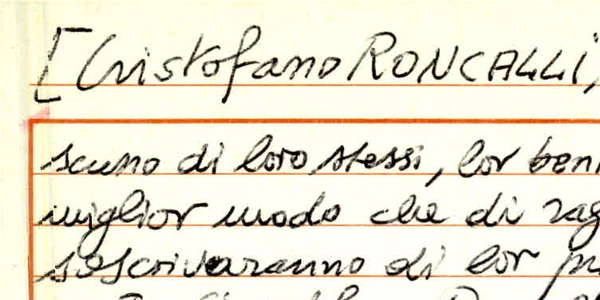 [Cristofano RONCALLI,
scuno di loro stessi, lor beni
miglior modo che di rag
soscrivaranno di lor pr